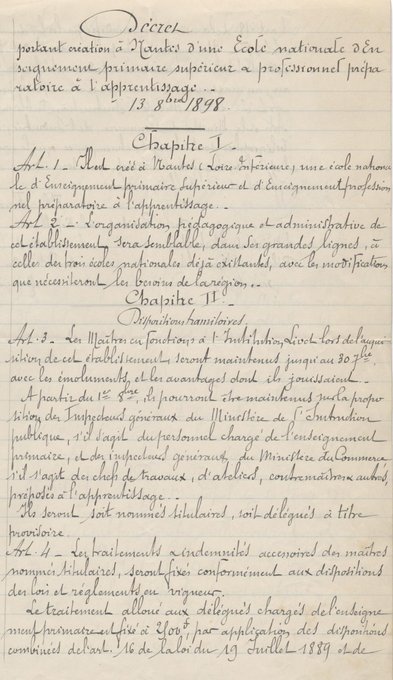 Décret
portant création à Nantes d'une Ecole nationale d'En
seignement primaire supérieur & professionnel prépa
ratoire à l'apprentissage._
13 8bre 1898.
Chapitre I
Art. 1 - Il est créé à Nantes (Loire Inférieure, une école nationa
le d'Enseignement primaire Supérieur et d'Enseignement profession
nel préparatoire à l'apprentissage._
Art. 2 - L'organisation pédagogique et administrative de
cet établissement, sera semblable, dans ses grandes lignes, à
celles des trois écoles nationales déjà existantes, avec les modifications
que nécessiteront les besoins de la région._
Chapitre II
Dispositions transitoires.
Art. 3 - Les Maîtres en fonctions à l'Institution Livet lors de l'acqui
sition de cet établissement, seront maintenus jusqu'au 30 7bre
avec les émoluments, et les avantages dont ils jouissaient._
A partir du 1er 8bre, ils pourront être maintenus sur la propo
sition des Inspecteurs généraux du Ministère de l'Instruction
publique, s'il s'agit du personnel chargé de l'enseignement
primaire, et des inspecteurs généraux du Ministère du Commerce
s'il s'agit des chefs de travaux, d'ateliers, contremaîtres & autres,
préposés à l'apprentissage._
Ils seront soit nommés titulaires, soit délégués à titre
provisoire.
Art. 4 - Les traitements & indemnités accessoires des maîtres
nommés titulaires, seront fixés conformément aux dispositions
des lois et règlements en vigueur.
Le traitement alloué aux délégués chargés de l'enseigne
ment primaire est fixé à 2500f, par application des dispositions
combinées de l'art. 16 de la loi du 19 Juillet 1889 et de